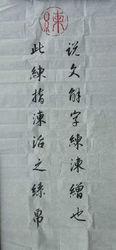 説文解字練湅繒也
此練指湅治之絲帛